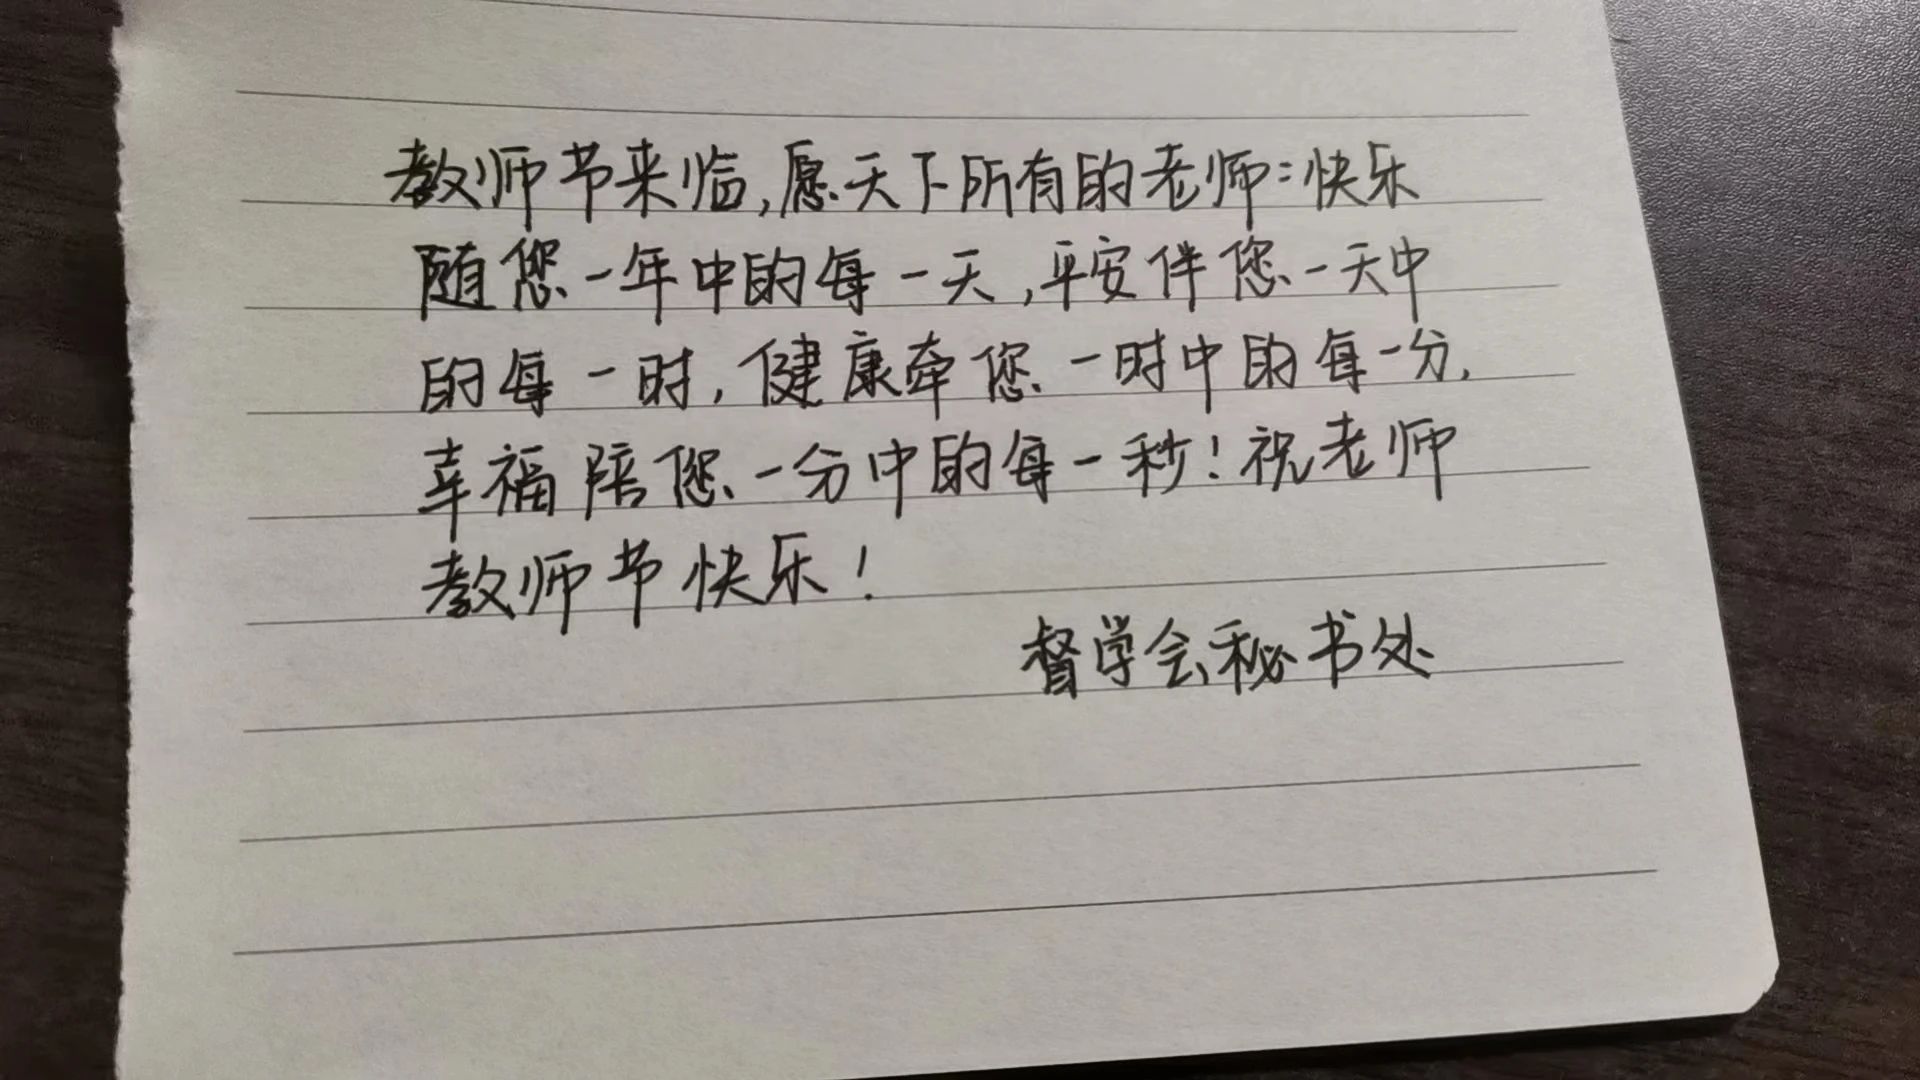 教师节来临,愿天下所有的老师:快乐
随您一年中的每一天,平安伴您一天中
的每一时,健康牵您一时中的每一分,
幸福陪您一分中的每一秒!祝老师
教师节快乐!
督学会秘书处